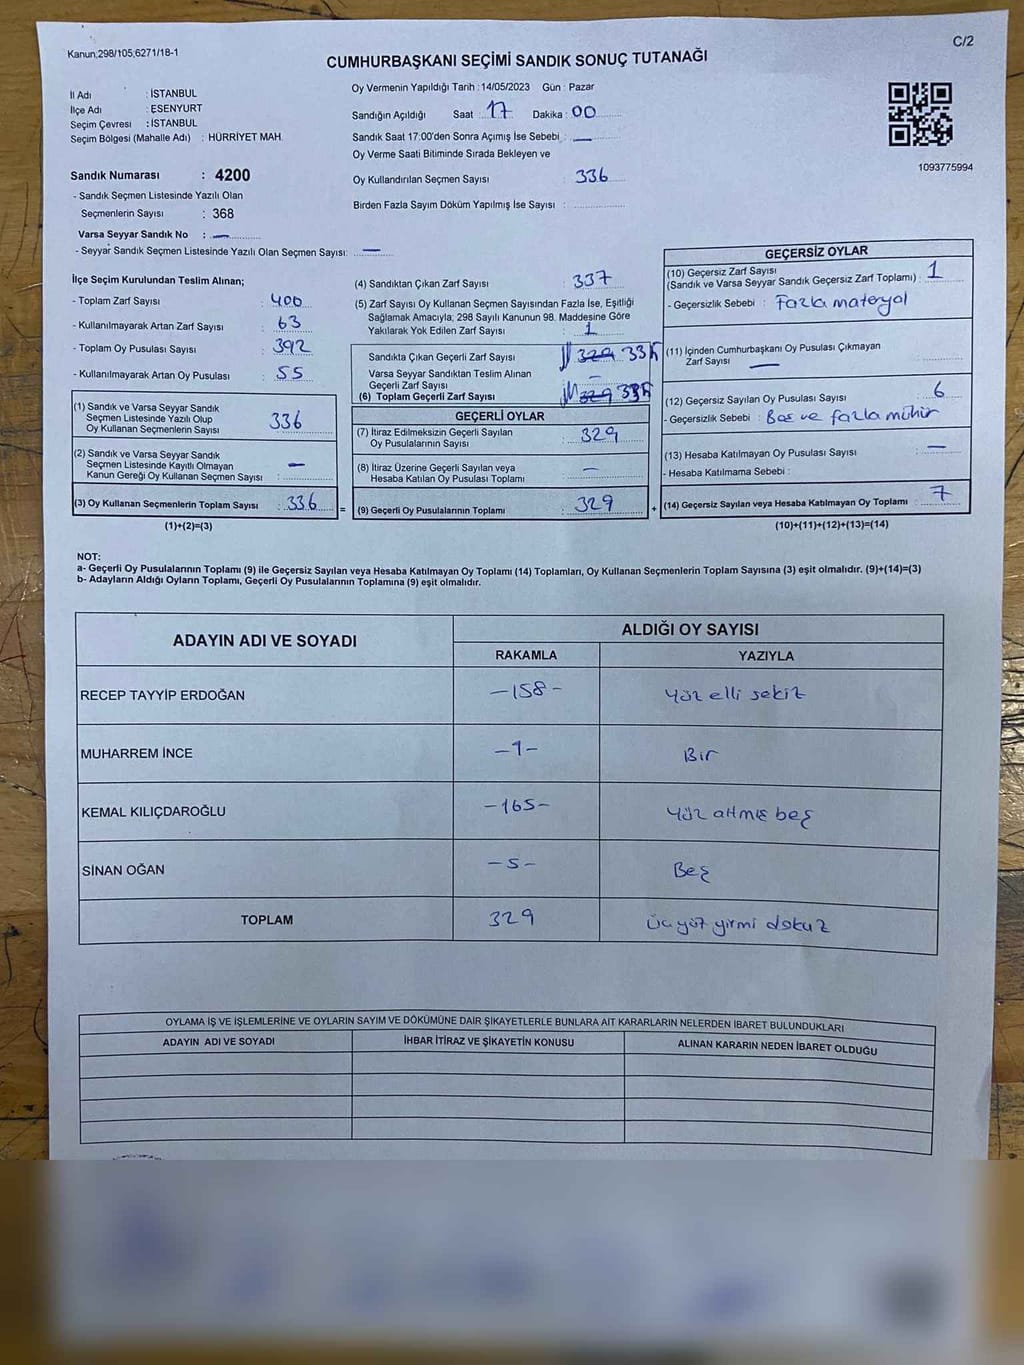 Kanun;298/105,6271/18-1
C/2
CUMHURBAŞKANI SEÇİMİ SANDIK SONUÇ TUTANAĞI
İl Adı : İSTANBUL
İlçe Adı : ESENYURT
Seçim Çevresi : İSTANBUL
Seçim Bölgesi (Mahalle Adı) : HÜRRİYET MAH.
Oy Vermenin Yapıldığı Tarih :14/05/2023 Gün : Pazar
Sandığın Açıldığı Saat : 17 Dakika : 00
Sandık Saat 17:00'den Sonra Açımış İse Sebebi : —
Oy Verme Saati Bitiminde Sırada Bekleyen ve
Oy Kullandırılan Seçmen Sayısı : 336
Birden Fazla Sayım Döküm Yapılmış İse Sayısı :
1093775994
Sandık Numarası : 4200
- Sandık Seçmen Listesinde Yazılı Olan
Seçmenlerin Sayısı : 368
Varsa Seyyar Sandık No : —
- Seyyar Sandık Seçmen Listesinde Yazılı Olan Seçmen Sayısı: —
İlçe Seçim Kurulundan Teslim Alınan;
- Toplam Zarf Sayısı : 400
- Kullanılmayarak Artan Zarf Sayısı : 63
- Toplam Oy Pusulası Sayısı : 392
- Kullanılmayarak Artan Oy Pusulası : 55
(1) Sandık ve Varsa Seyyar Sandık
Seçmen Listesinde Yazılı Olup
Oy Kullanan Seçmenlerin Sayısı : 336
(2) Sandık ve Varsa Seyyar Sandık
Seçmen Listesinde Kayıtlı Olmayan
Kanun Gereği Oy Kullanan Seçmen Sayısı : —
(3) Oy Kullanan Seçmenlerin Toplam Sayısı : 336
(1)+(2)=(3)
=
(4) Sandıktan Çıkan Zarf Sayısı : 337
(5) Zarf Sayısı Oy Kullanan Seçmen Sayısından Fazla İse, Eşitliği
Sağlamak Amacıyla, 298 Sayılı Kanunun 98. Maddesine Göre
Yakılarak Yok Edilen Zarf Sayısı : 1
Sandıkta Çıkan Geçerli Zarf Sayısı : 329
Varsa Seyyar Sandıktan Teslim Alınan
Geçerli Zarf Sayısı : —
(6) Toplam Geçerli Zarf Sayısı : 329
GEÇERLİ OYLAR
(7) İtiraz Edilmeksizin Geçerli Sayılan
Oy Pusulalarının Sayısı : 329
(8) İtiraz Üzerine Geçerli Sayılan veya
Hesaba Katılan Oy Pusulası Toplamı : —
(9) Geçerli Oy Pusulalarının Toplamı : 329
+
GEÇERSİZ OYLAR
(10) Geçersiz Zarf Sayısı
(Sandık ve Varsa Seyyar Sandık Geçersiz Zarf Toplamı) : 1
- Geçersizlik Sebebi : Fazla materyal
(11) İçinden Cumhurbaşkanı Oy Pusulası Çıkmayan
Zarf Sayısı : —
(12) Geçersiz Sayılan Oy Pusulası Sayısı : 6
- Geçersizlik Sebebi : Boş ve fazla mühür
(13) Hesaba Katılmayan Oy Pusulası Sayısı : —
- Hesaba Katılmama Sebebi :
(14) Geçersiz Sayılan veya Hesaba Katılmayan Oy Toplamı : 7
(10)+(11)+(12)+(13)=(14)
NOT:
a- Geçerli Oy Pusulalarının Toplamı (9) ile Geçersiz Sayılan veya Hesaba Katılmayan Oy Toplamı (14) Toplamları, Oy Kullanan Seçmenlerin Toplam Sayısına (3) eşit olmalıdır. (9)+(14)=(3)
b- Adayların Aldığı Oyların Toplamı, Geçerli Oy Pusulalarının Toplamına (9) eşit olmalıdır.
ADAYIN ADI VE SOYADI ALDIĞI OY SAYISI
RAKAMLA YAZIYLA
RECEP TAYYİP ERDOĞAN -158- Yüz elli sekiz
MUHARREM İNCE -1- Bir
KEMAL KILIÇDAROĞLU -165- Yüz altmış beş
SİNAN OĞAN -5- Beş
TOPLAM 329 üç yüz yirmi dokuz
OYLAMA İŞ VE İŞLEMLERİNE VE OYLARIN SAYIM VE DÖKÜMÜNE DAİR ŞİKAYETLERLE BUNLARA AİT KARARLARIN NELERDEN İBARET BULUNDUKLARI
ADAYIN ADI VE SOYADI İHBAR İTİRAZ VE ŞİKAYETİN KONUSU ALINAN KARARIN NEDEN İBARET OLDUĞU